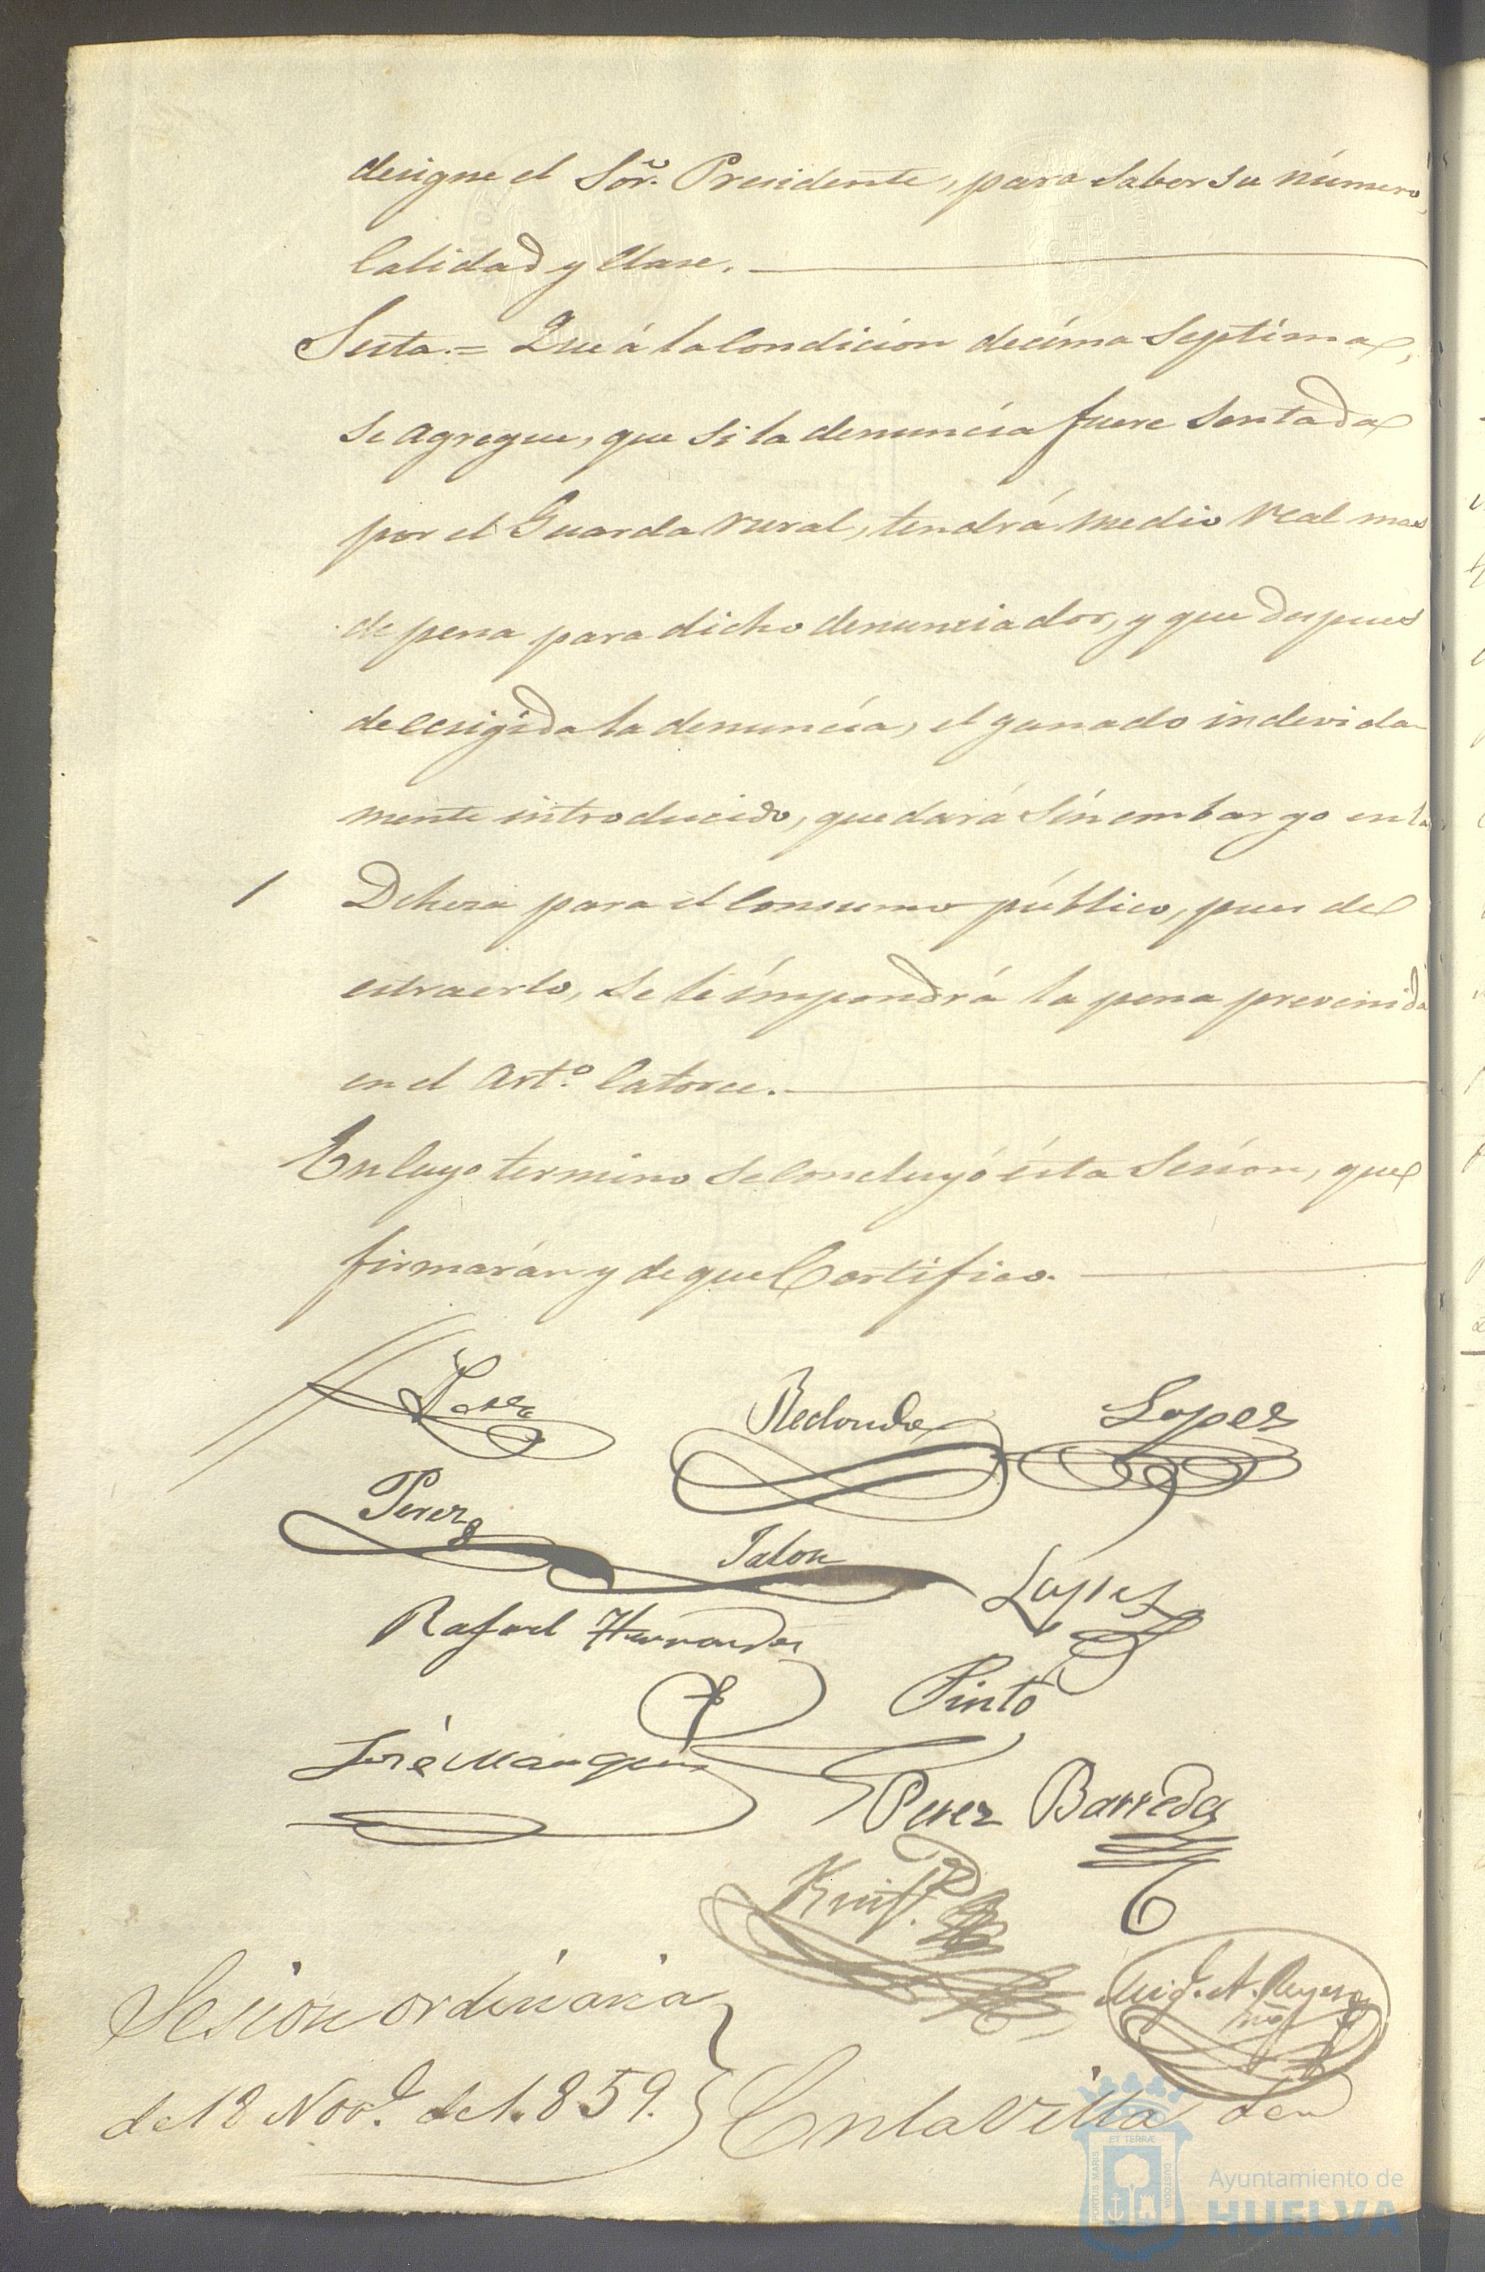 designe el Sor. Presidente, para saber su número,
Calidad y Clase.
Sesta.= Que á la Condicion decíma Septíma,
se agregue, que si la denuncía fuere Sentada
por el Guarda rural, tendrá medio real mas
de pena para dicho denunciador, y que despues
de ecsigida la denuncía, el ganado indevida-
mente introducido, quedará sín embargo en la
1 Dehesa para el Consumo público, pues de
estraerlo, se le ímpondrá la pena prevenida
en el Arto. Catorce.
En Cuyo termino se Concluyó ésta Sesion, que
firmarán y de que Certifico.
Redondo Lopez
Perez
Jalon
Lopez
Rafael Hernandez
Pinto
José Marquez
Perez Barreda
Sesion ordinaria
de 18 Nove. de 1.859. En la Villa de
PORTUS MARIS ET TERRÆ CUSTODIA
Ayuntamiento de
HUELVA